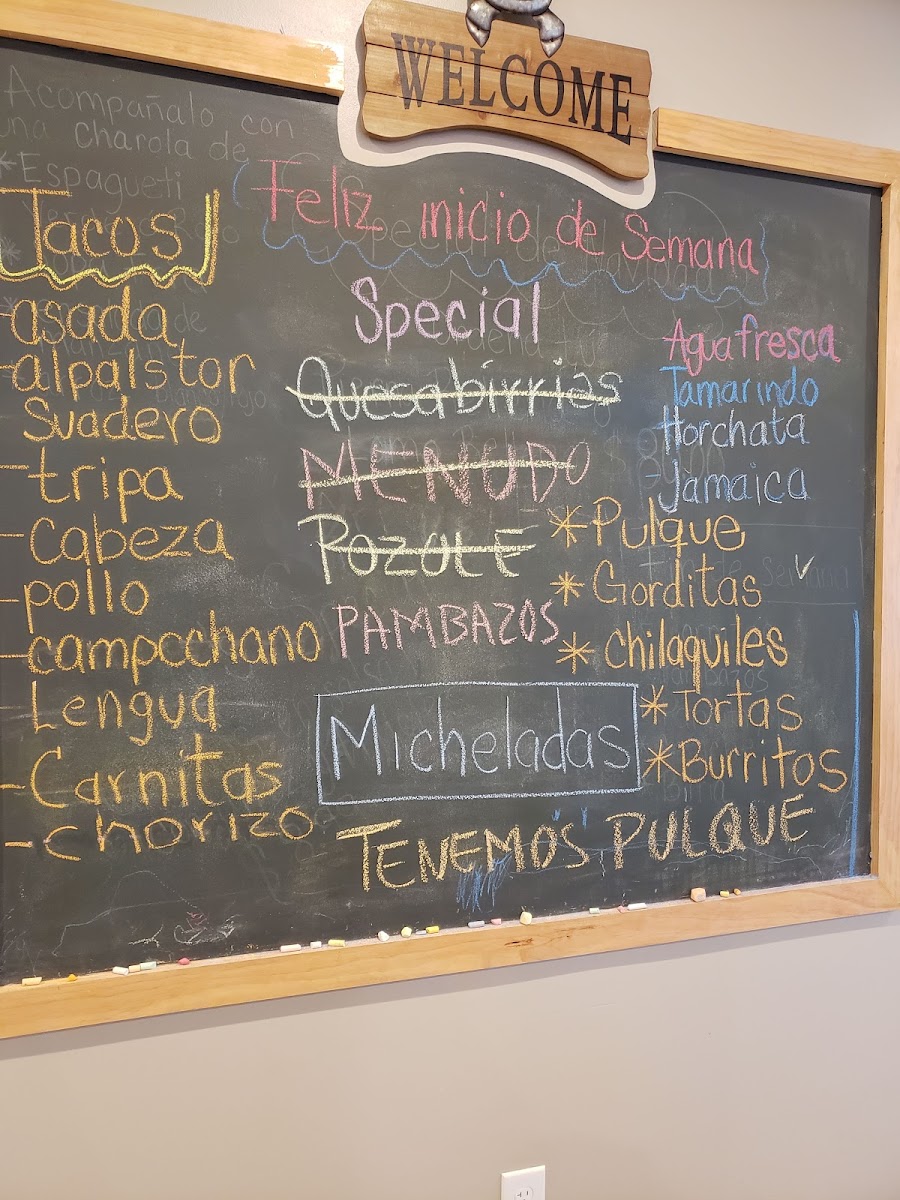 WELCOME
Acompañalo con
una charola de
*Espagueti
Feliz inicio de Semana
Tacos
-asada
-alpalstor
Suadero
-tripa
-Cabeza
-pollo
-campcchano
Lengua
-Carnitas
-chorizo
Special
Quesabirrias
MENUDO
POZOLE
PAMBAZOS
Micheladas
TENEMOS PULQUE
Agua fresca
Tamarindo
Horchata
-Jamaica
*Pulque
*Gorditas
*Chilaquiles
*Tortas
*Burritos